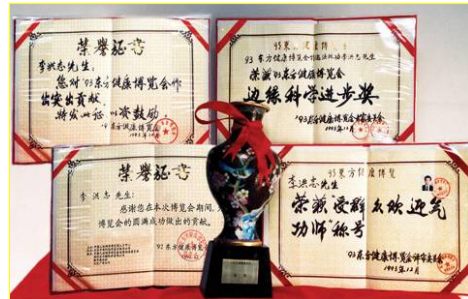 荣誉证书
李洪志先生:
您对'93东方健康博览会作
出突出贡献,
特发此证,以资鼓励。
'93东方健康博览会
1993年12月
93东方健康博览会
李洪志先生
荣获'93东方健康博览会
边缘科学进步奖
'93东方健康博览会
1993年12月
荣誉证书
李洪志先生:
感谢您在本次博览会期间,
博览会的圆满成功做出的贡献。
'92东方健康博览会
93东方健康博览
李洪志先生
荣获受群众欢迎气
功师称号
93东方健康博览会评审委员会
1993年12月